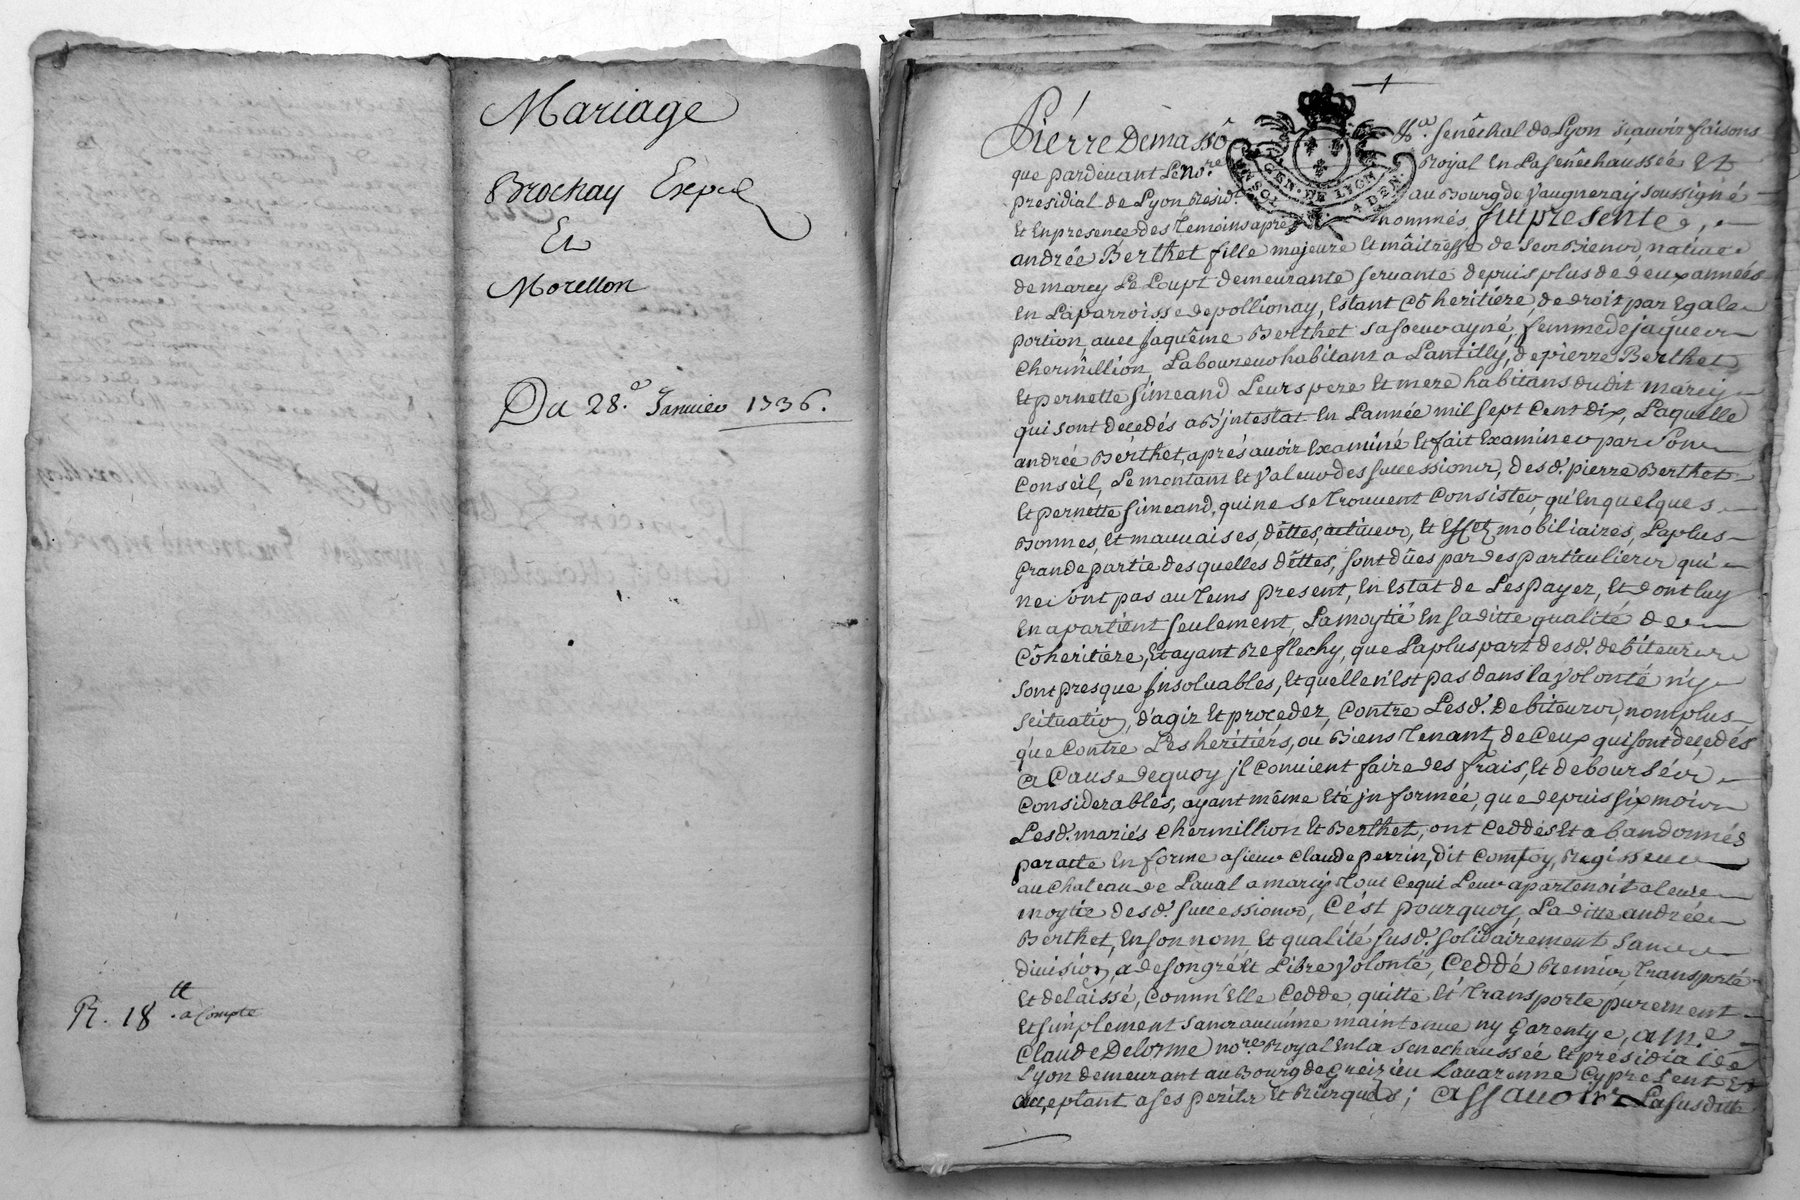 Mariage
Brochay Expéd
Et
Morellon
Du 28.e Janvier 1736.
R. 18 tt à Compte
Pierre Demasso
GEN. DE LYON
4 DEN.
Senêchal de Lyon sçavoir faisons
que pardevant Le No.re Royal En La senêchaussée Et
presidial de Lyon Resid.t au Bourg de Vaugneray soussigné
Et En presence des Temoins apres nommés fut presente
andrée Berthet fille majeure Et maîtresse de ses Biens native
de marcy Le Loupt demeurante servante depuis plus de deux années
En La parroisse de pollionay, Estant Côheritiere, de droit par Egale
portion, avec Jaquême Berthet sa soeur aynê, femme de jaques
Chermillion, Laboureur habitant a Lantilly, de pierre Berthet
Et pernette simeand Leurs pere Et mere habitans dudit marcy
qui sont decedés abjntestat En L'année mil sept Cent dix, Laquelle
andrée Berthet, aprés avoir Examiné Et fait Examiner par son
Conseil, Le montant Et valeur des successions, des d. pierre Berthet
Et pernette simeand, qui ne se trouvent Consister, qu'En quelques
Bonnes, Et mauvaises, dettes, actives, Et Effets mobiliaires, La plus
grande partie desquelles dêttes, sont dûes par des particuliers qui
ne sont pas au Tems present, En Estat de Les payer, Et dont luy
En apartient seulement, La moytié En sa ditte qualité de
Côheritiere, Et ayant Reflechy, que La plus part des d. debiteurs
sont presque Insolvables, Et quelle n'Est pas dans la volonté n'y
scituation, d'agir Et proceder, Contre Lesd. Debiteurs, nomplus
que Contre Les heritiers, ou Biens Tenant, de Ceux qui sont decedés
a Cause dequoy jl Convient faire des frais, Et deboursés
Considerables, ayant même Eté jnformée, que depuis six mois
Lesd. mariés Chermillion Et Berthet, ont Ceddés Et abandonnés
par acte En forme a sieur Claude perrin, dit Comtoy, Regisseur
au Chateau de Laval a marcy Tout Cequi Leur apartenoit a leur
moytié desd. successions, C'ést pourquoy, La ditte andrée
Berthet, En son nom Et qualité susd. solidairement sans
division, a de son gré Et Libre volonté, Ceddé Remis, Transporté
Et delaissé, Comm'Elle Cedde, quitte Et Transporte purement
Et simplement sans aucune maintenue ny Garentye, a m.e
Claude Delorme no.re Royal En La senechaussée Et présidial de
Lyon demeurant au Bourg de Greizieu Lavarenne Cy present Et
acceptant a ses perils Et Risques; assavoir La susditte